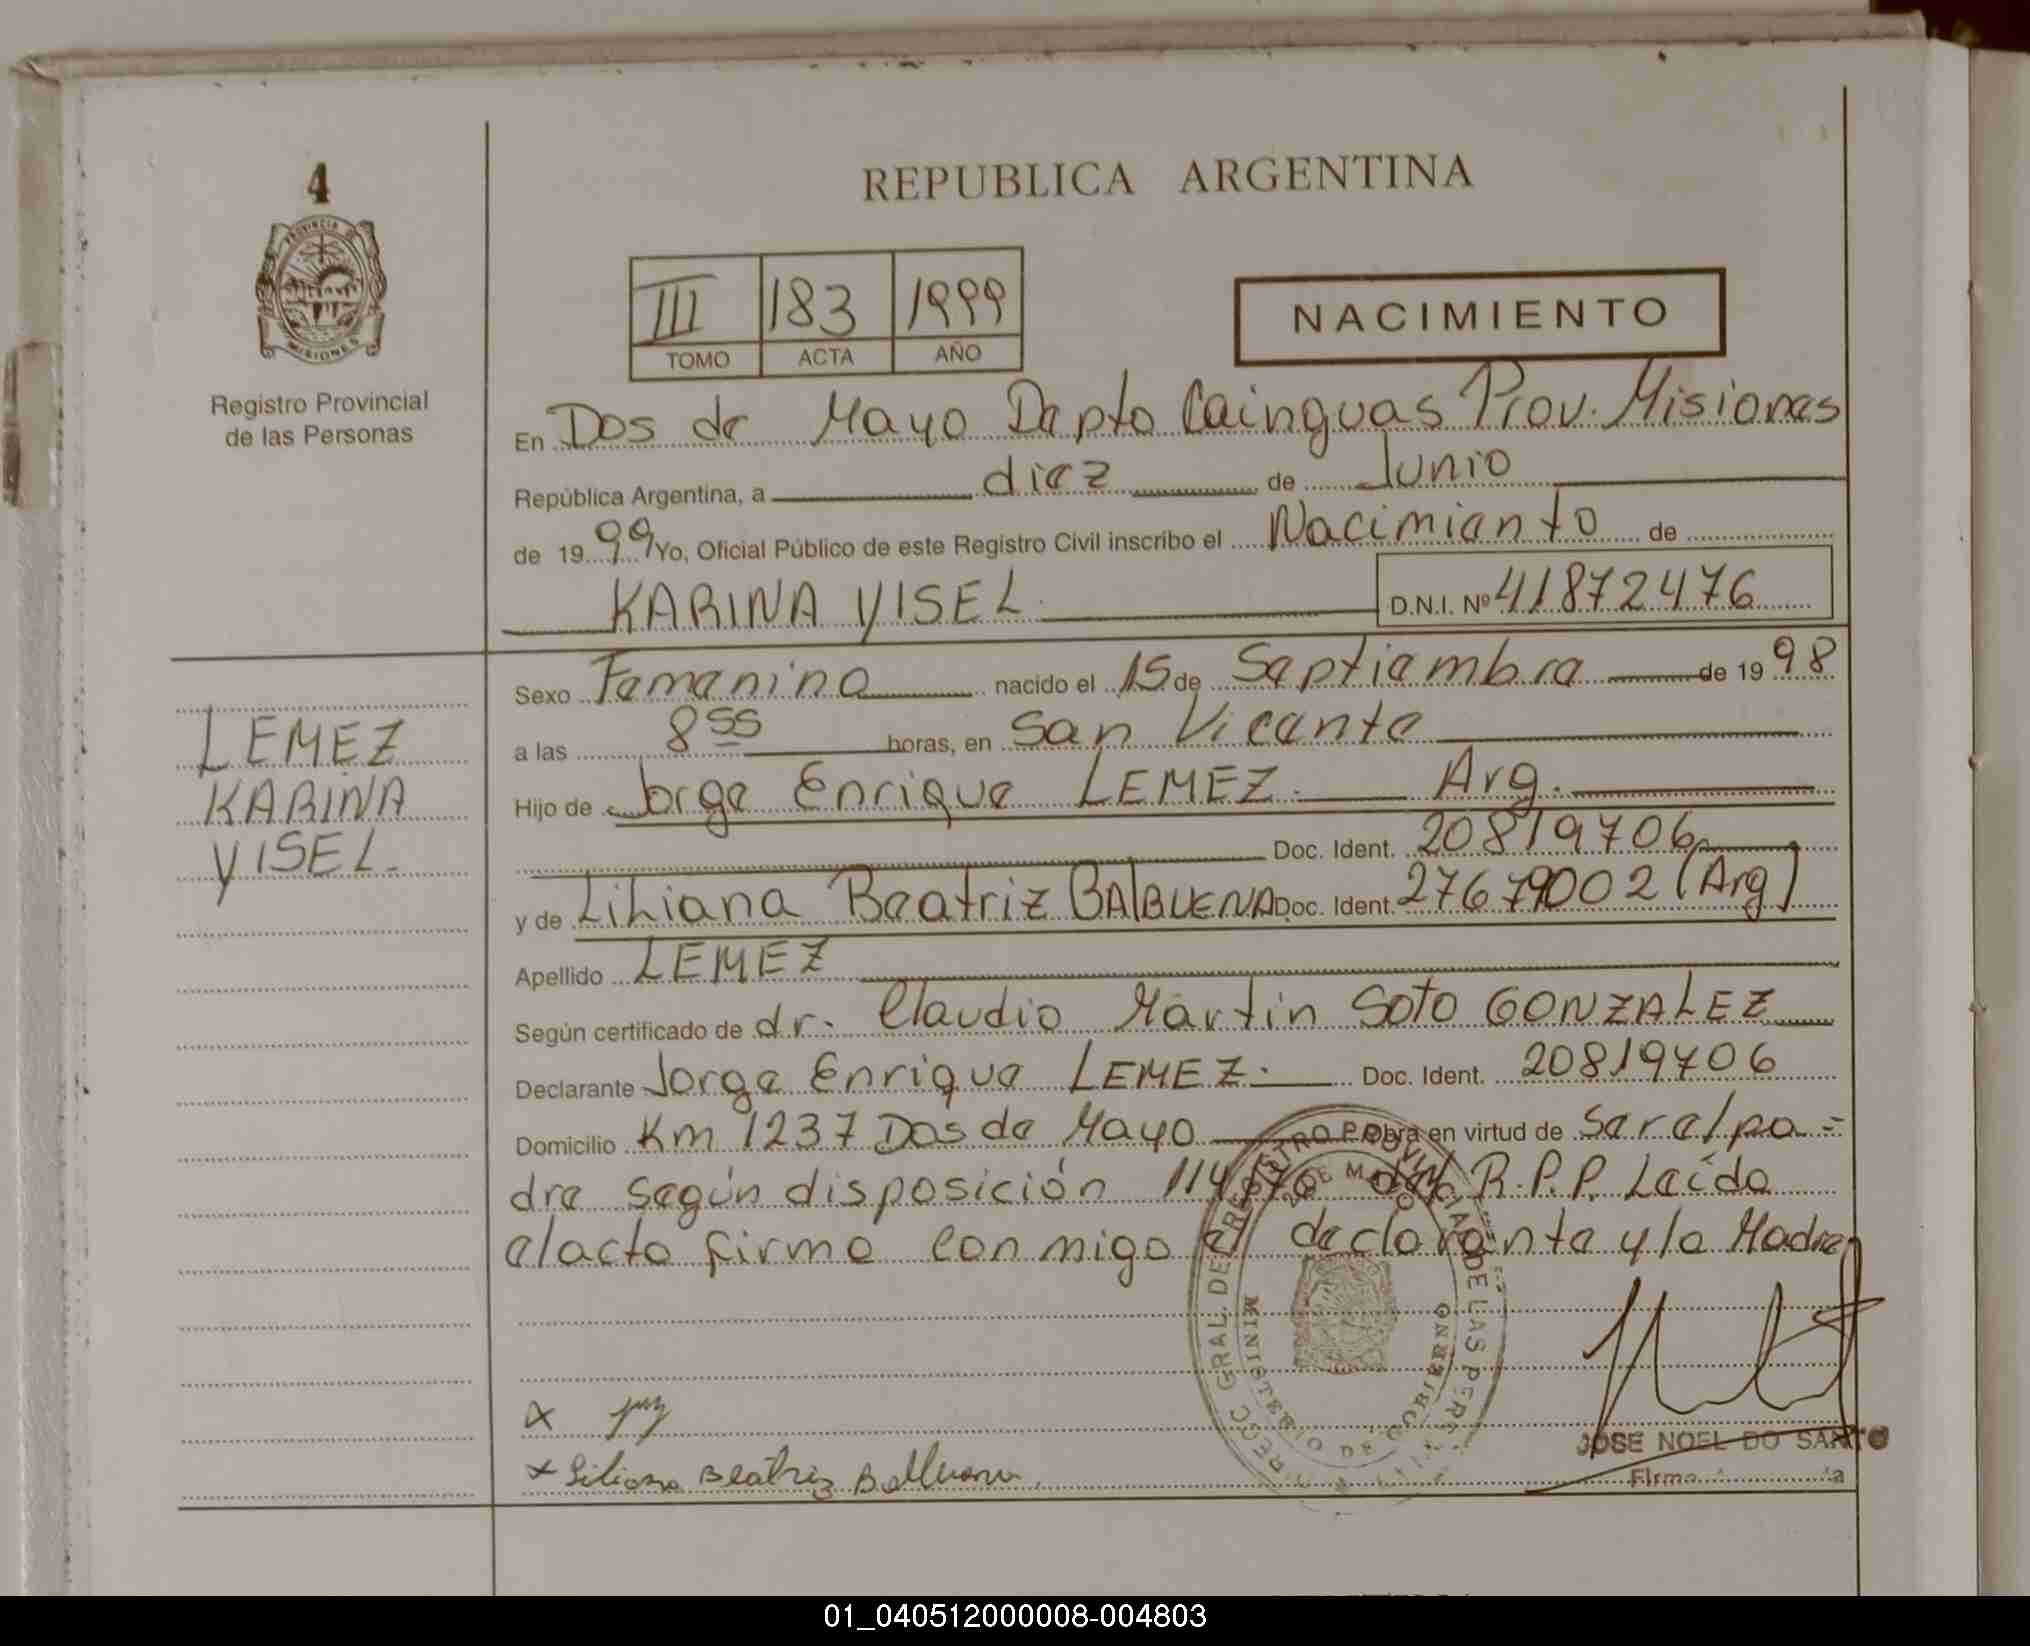 4
PROVINCIA DE
MISIONES
Registro Provincial
de las Personas
REPUBLICA ARGENTINA
III 183 1999
TOMO ACTA AÑO
NACIMIENTO
En Dos de Mayo Depto Cainguas Prov. Misiones
República Argentina, a diez de Junio
de 1999 Yo, Oficial Público de este Registro Civil inscribo el Nacimiento de
KARINA YISEL D.N.I. Nº 41872476
Sexo Femenino nacido el 15 de Septiembre de 1998
a las 8 55 horas, en San Vicente
Hijo de Jorge Enrique LEMEZ. Arg.
Doc. Ident. 20819706
y de Liliana Beatriz BAlBUENA Doc. Ident. 27679002 (Arg)
Apellido LEMEZ
Según certificado de dr. Claudio Martin Soto GONZALEZ
Declarante Jorge Enrique LEMEZ. Doc. Ident. 20819706
Domicilio Km 1237 Dos de Mayo Obra en virtud de Ser el pa=
dre según disposición 114 del R.P.P. Leído
el acto firma conmigo el declarante y la Madre
LEMEZ
KARINA
YISEL.
MINISTERIO DE GOBIERNO
x
x Liliana Beatriz Balbuena
JOSE NOEL DO SANTO
Firma
01_040512000008-004803